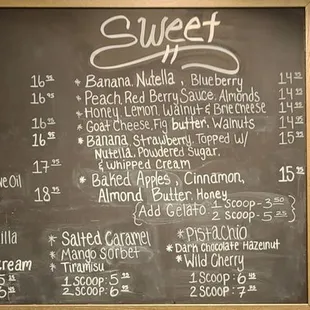 Sweet
16 95 * Banana, Nutella, Blueberry 14 95
16 95 * Peach, Red Berry Sauce, Almonds 14 95
* Honey, Lemon, Walnut & Brie Cheese 14 95
16 95 * Goat Cheese, Fig butter, Walnuts 14 95
16 95 * Banana, Strawberry, Topped W/ 15 95
Nutella, Powdered Sugar,
17 95 & Whipped Cream
ve Oil * Baked Apples, Cinnamon, 15 95
18 95 Almond Butter, Honey
Add Gelato 1 Scoop - 3 50
2 Scoop - 5 25
illa * Salted Caramel * Pistachio
* Mango Sorbet * Dark Chocolate Hazelnut
ream * Tiramisu * Wild Cherry
5 25 1 Scoop: 5 95 1 Scoop: 6 95
6 95 2 Scoop: 6 95 2 Scoop: 7 95